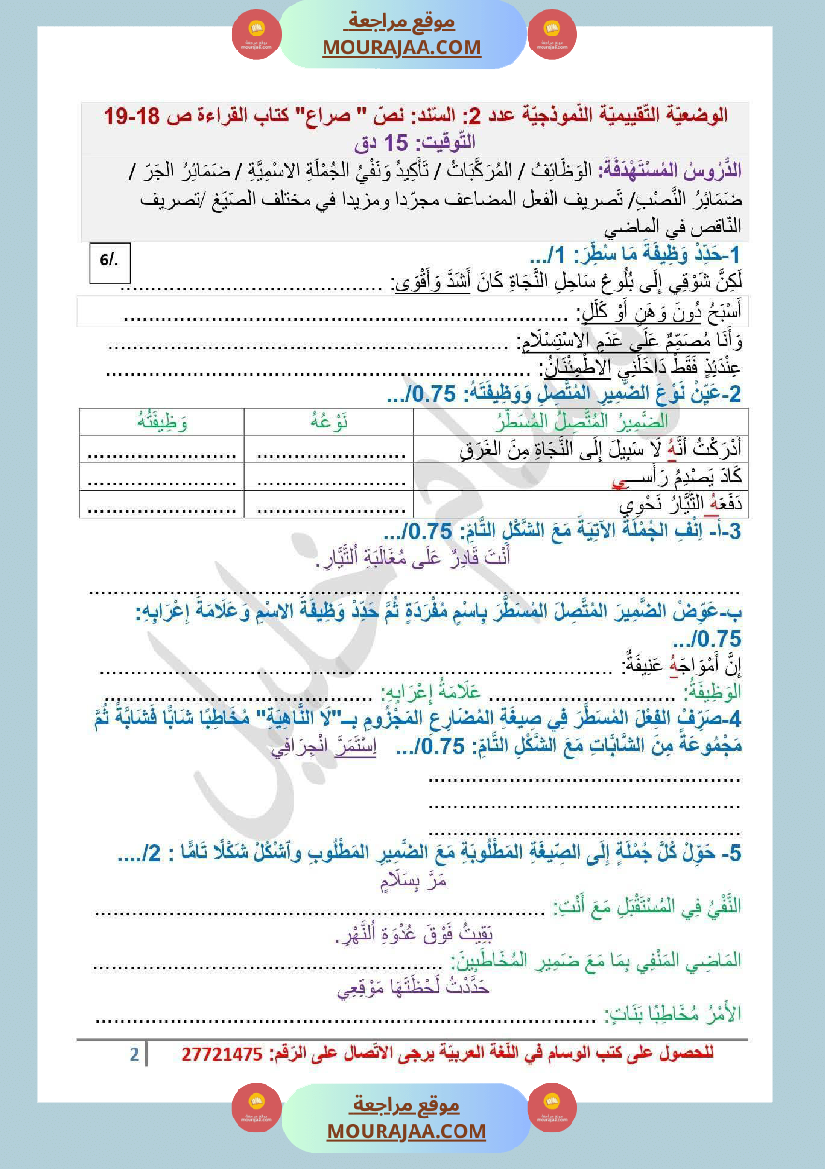 موقع مراجعة
MOURAJAA.COM
الوضعيّة التّقييميّة النّموذجيّة عدد 2: السّند: نصّ " صراع" كتاب القراءة ص 18-19
التّوقيت: 15 دق
الدُّرُوسُ المُسْتَهْدَفَةُ: الوَظَائِفُ / المُرَكَّبَاتُ / تَأْكِيدُ وَنَفْيُ الجُمْلَةِ الاسْمِيَّةِ / ضَمَائِرُ الجَرّ /
ضَمَائِرُ النَّصْبِ/ تَصريف الفعل المضاعف مجرّدا ومزيدا في مختلف الصّيَغ /تصريف
النّاقص في الماضي
./6
1-حَدِّدْ وَظِيفَةَ مَا سُطِّرَ: 1/...
لَكِنَّ شَوْقِي إِلَى بُلُوغِ سَاحِلِ النَّجَاةِ كَانَ أَشَدَّ وَأَقْوَى: ..........................................
أَسْبَحُ دُونَ وَهَنٍ أَوْ كَلَلٍ: ........................................................................
وَأَنَا مُصَمِّمٌ عَلَى عَدَمِ الاسْتِسْلَامِ: .................................................................
عِنْدَئِذٍ فَقَطْ دَاخَلَنِي الاطْمِئْنَانُ: .....................................................................
2-عَيِّنْ نَوْعَ الضَّمِيرِ المُتَّصِلِ وَوَظِيفَتَهُ: 0.75/...
الضَّمِيرُ المُتَّصِلُ المُسَطَّرُ نَوْعُهُ وَظِيفَتُهُ
أَدْرَكْتُ أَنَّهُ لَا سَبِيلَ إِلَى النَّجَاةِ مِنَ الغَرَقِ ........................ ........................
كَادَ يَصْدِمُ رَأْســـِي ........................ ........................
دَفَعَهُ التَّيَّارُ نَحْوِي ........................ ........................
3-أ- اِنْفِ الجُمْلَةَ الآتِيَةَ مَعَ الشَّكْلِ التَّامِّ: 0.75/...
أَنْتَ قَادِرٌ عَلَى مُغَالَبَةِ اُلتَّيَّارِ.
.........................................................................................................
ب-عَوِّضْ الضَّمِيرَ المُتَّصِلَ المُسَطَّرَ بِاسْمٍ مُفْرَدَةٍ ثُمَّ حَدِّدْ وَظِيفَةَ الاسْمِ وَعَلَامَةَ إِعْرَابِهِ:
0.75/...
إِنَّ أَمْوَاجَهُ عَنِيفَةٌ: ...................................................................................
الوَظِيفَةُ: .............................. عَلَامَةُ إِعْرَابِهِ: ...........................................
4-صَرِّفْ الفِعْلَ المُسَطَّرَ فِي صِيغَةِ المُضَارِعِ المَجْزُومِ بِــ"لَا النَّاهِيَةِ" مُخَاطِبًا شَابًّا فَشَابَّةً ثُمَّ
مَجْمُوعَةً مِنَ الشَّابَّاتِ مَعَ الشَّكْلِ التَّامِّ: 0.75/... اِسْتَمَرَّ انْجِرَافِي
..................................................
..................................................
..................................................
5- حَوِّلْ كُلَّ جُمْلَةٍ إِلَى الصِّيغَةِ المَطْلُوبَةِ مَعَ الضَّمِيرِ المَطْلُوبِ وٱشْكُلْ شَكْلًا تَامًّا : 2/....
مَرَّ بِسَلَامٍ
النَّفْيُ فِي المُسْتَقْبَلِ مَعَ أَنْتِ: .........................................................................
بَقِيتُ فَوْقَ عُدْوَةِ اُلنَّهْرِ.
المَاضِي المَنْفِي بِمَا مَعَ ضَمِيرِ المُخَاطَبِينَ: .........................................................
حَدَّدْتُ لَحْظَتَهَا مَوْقِعِي
الأَمْرُ مُخَاطِبًا بَنَاتٍ: .................................................................................
للحصول على كتب الوسام في اللّغة العربيّة يرجى الاتّصال على الرّقم: 27721475 2
موقع مراجعة
MOURAJAA.COM